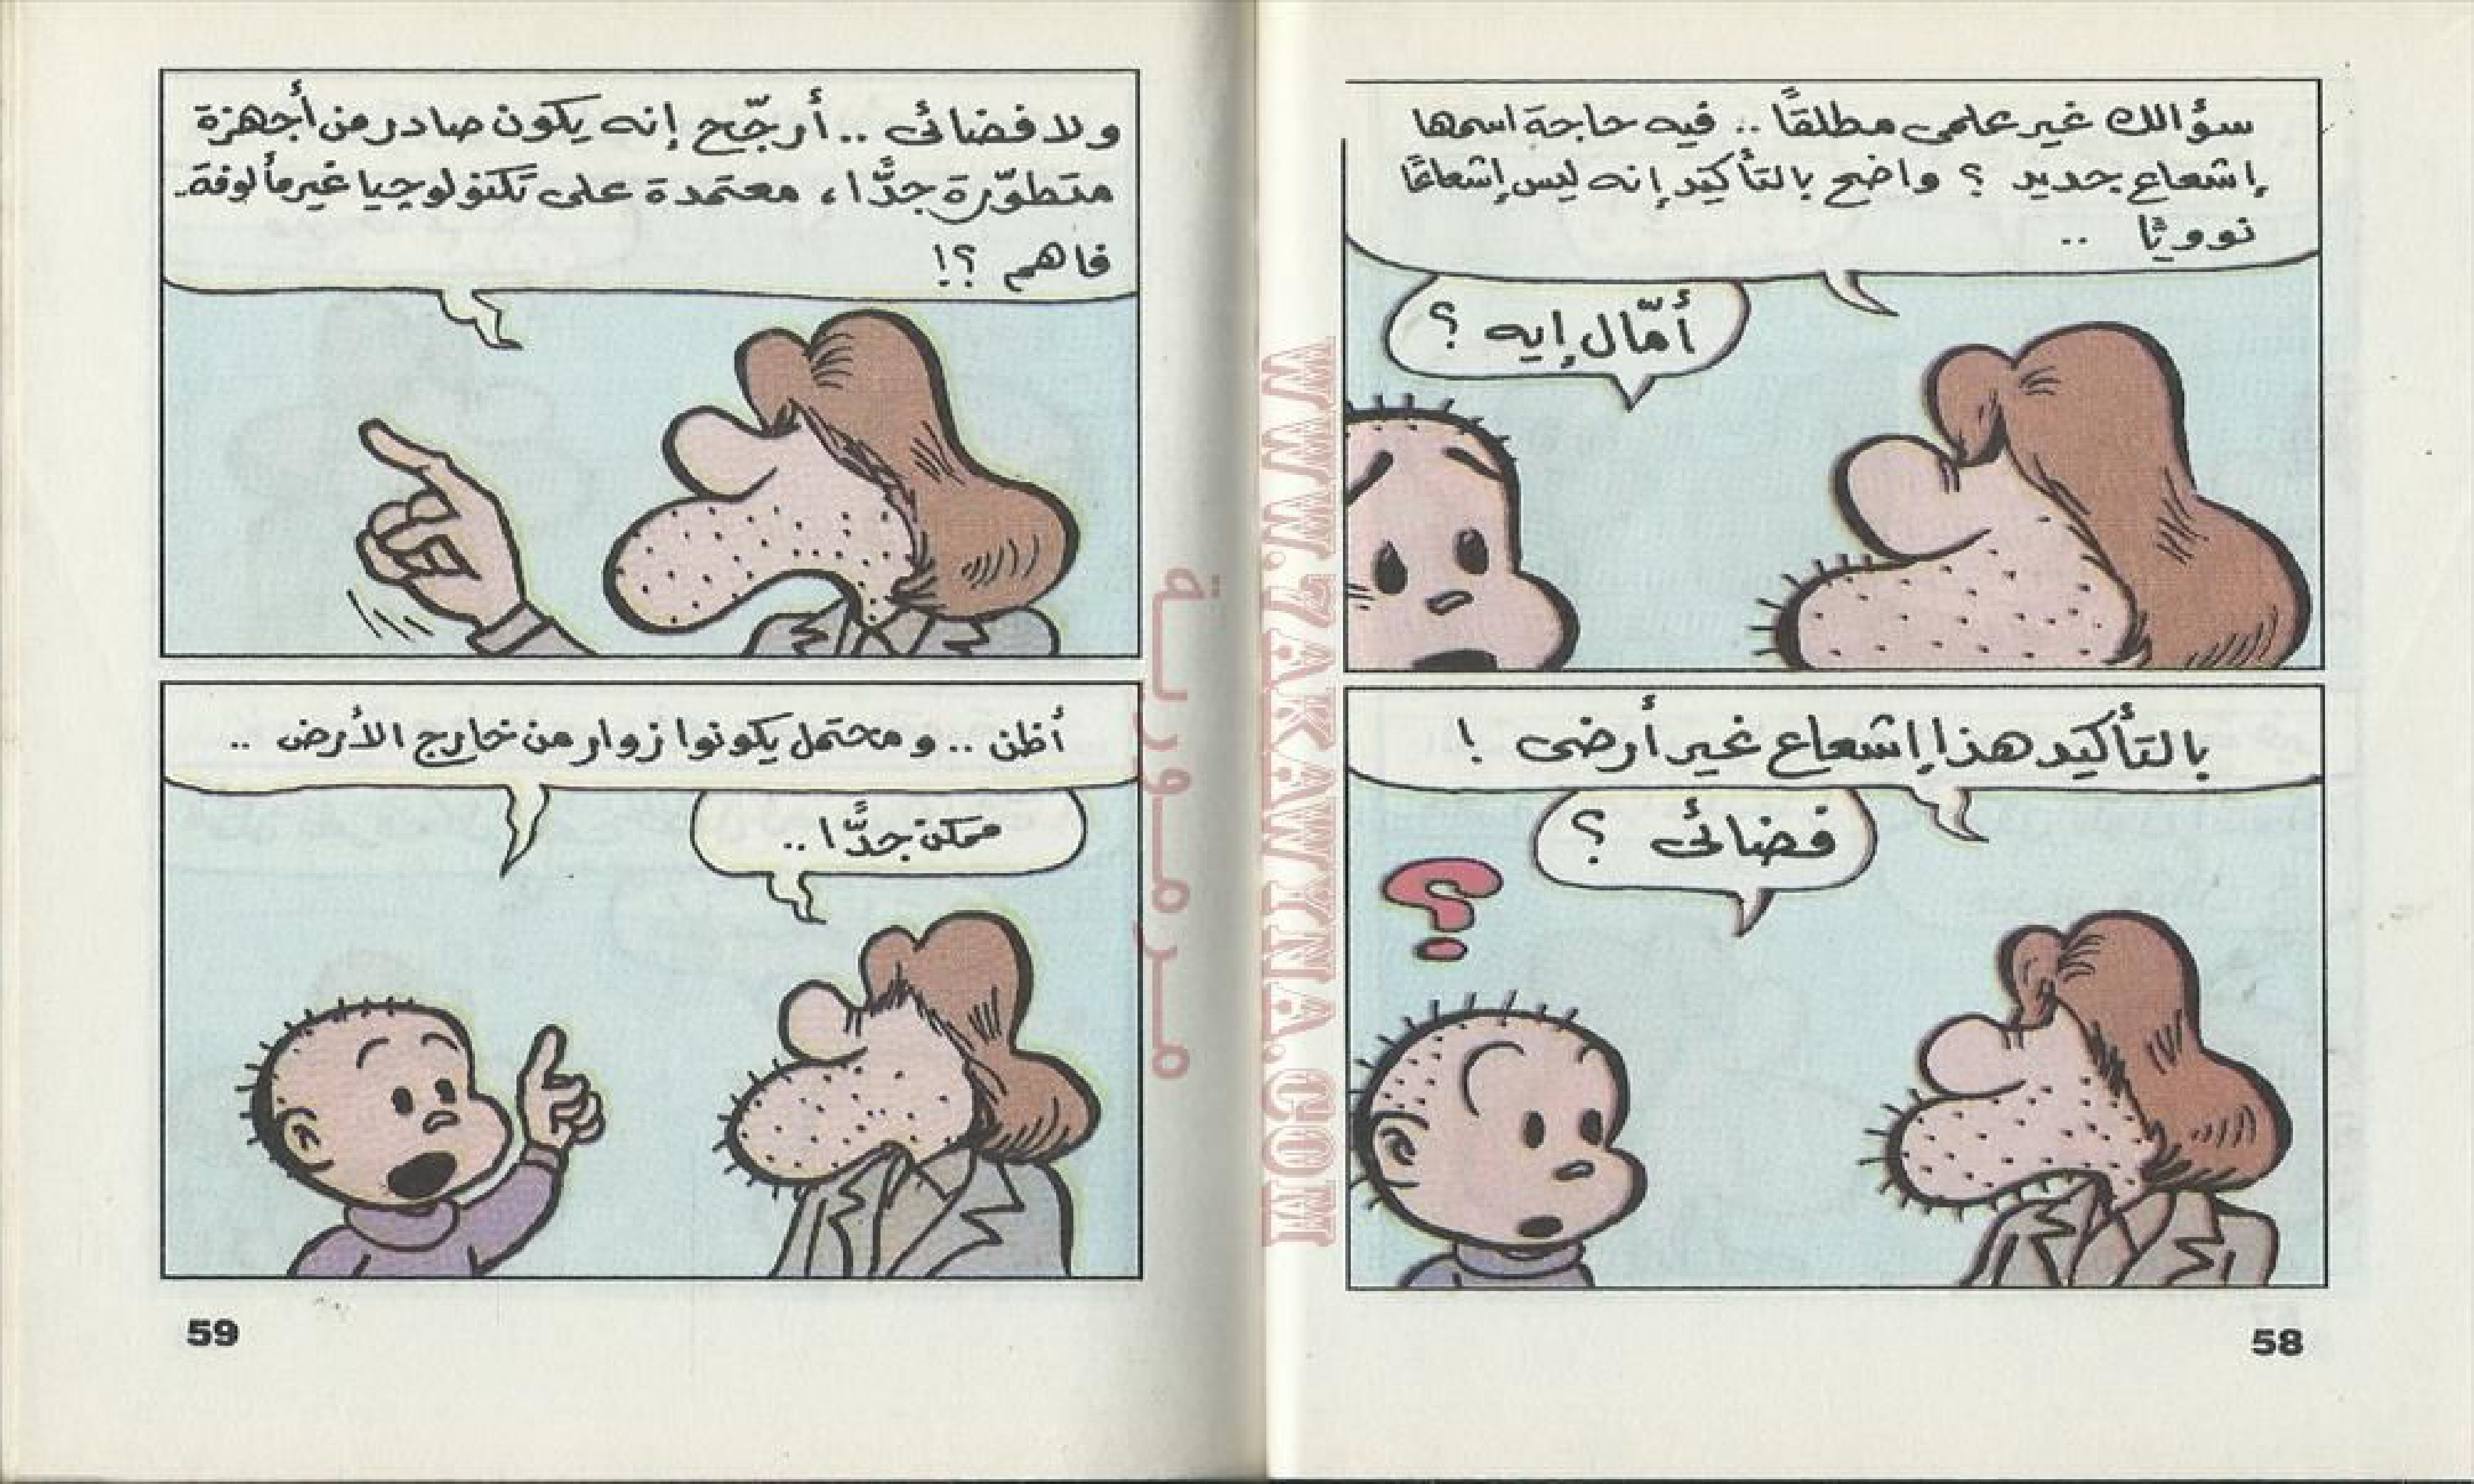 سؤالك غير علمى مطلقًا .. فيه حاجة اسمها
إشعاع جديد ؟ واضح بالتأكيد إنه ليس إشعاعًا
نوويًّا ..
أمّال إيه ؟
بالتأكيد هذا إشعاع غير أرضى !
فضائى ؟
58
ولا فضائى .. أرجّح إنه يكون صادر من أجهزة
متطوّرة جدًّا ، معتمدة على تكنولوجيا غير مألوفة ..
فاهم ؟!
أظن .. ومحتمل يكونوا زوار من خارج الأرض ..
ممكن جدًّا ..
59
مرمورية
WWW.7AKAWYNA.COM